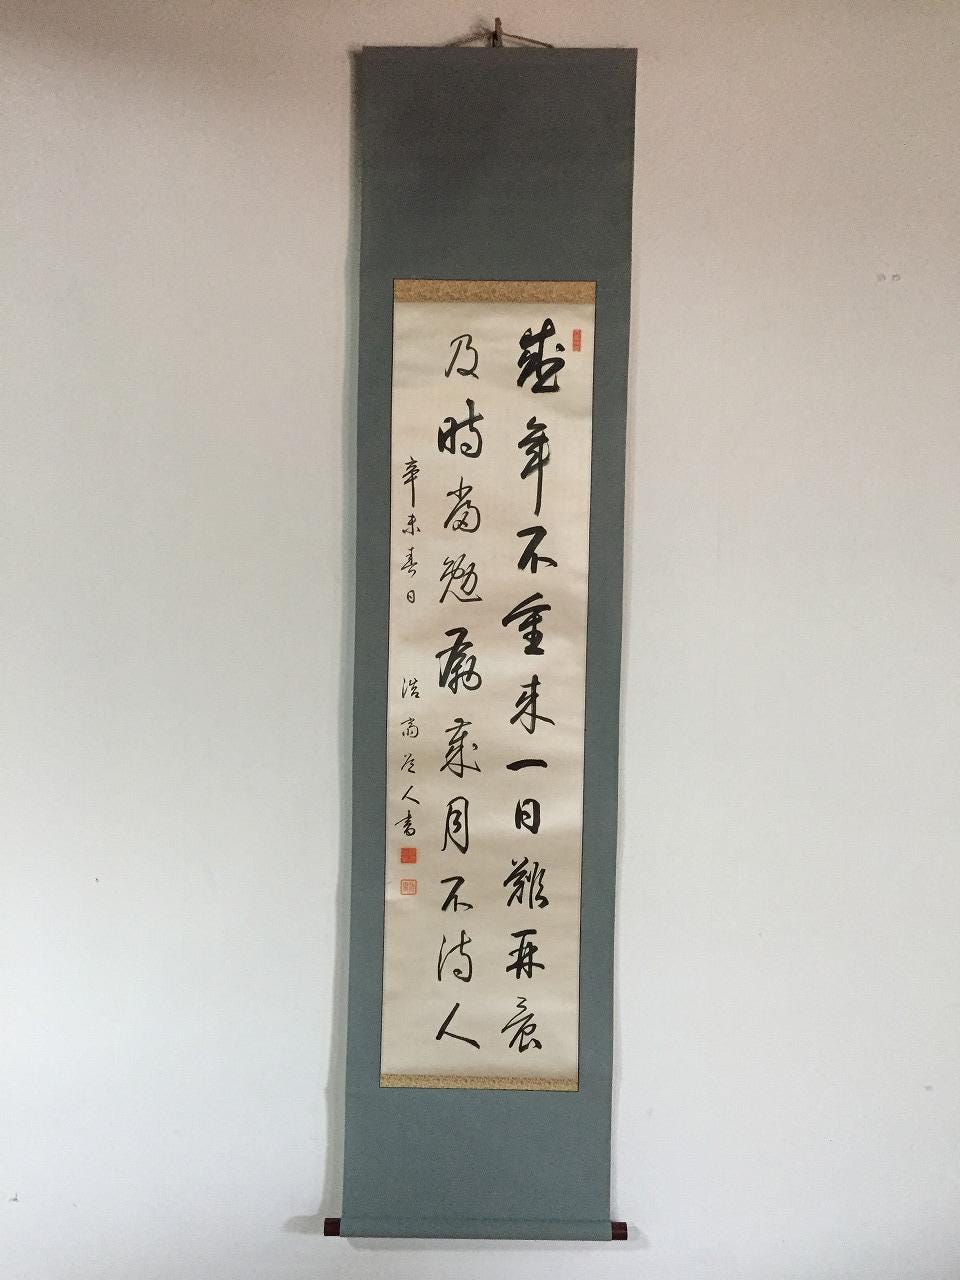 盛年不重来一日難再晨
及時當勉勵歳月不待人
辛未春日 浩斎道人書